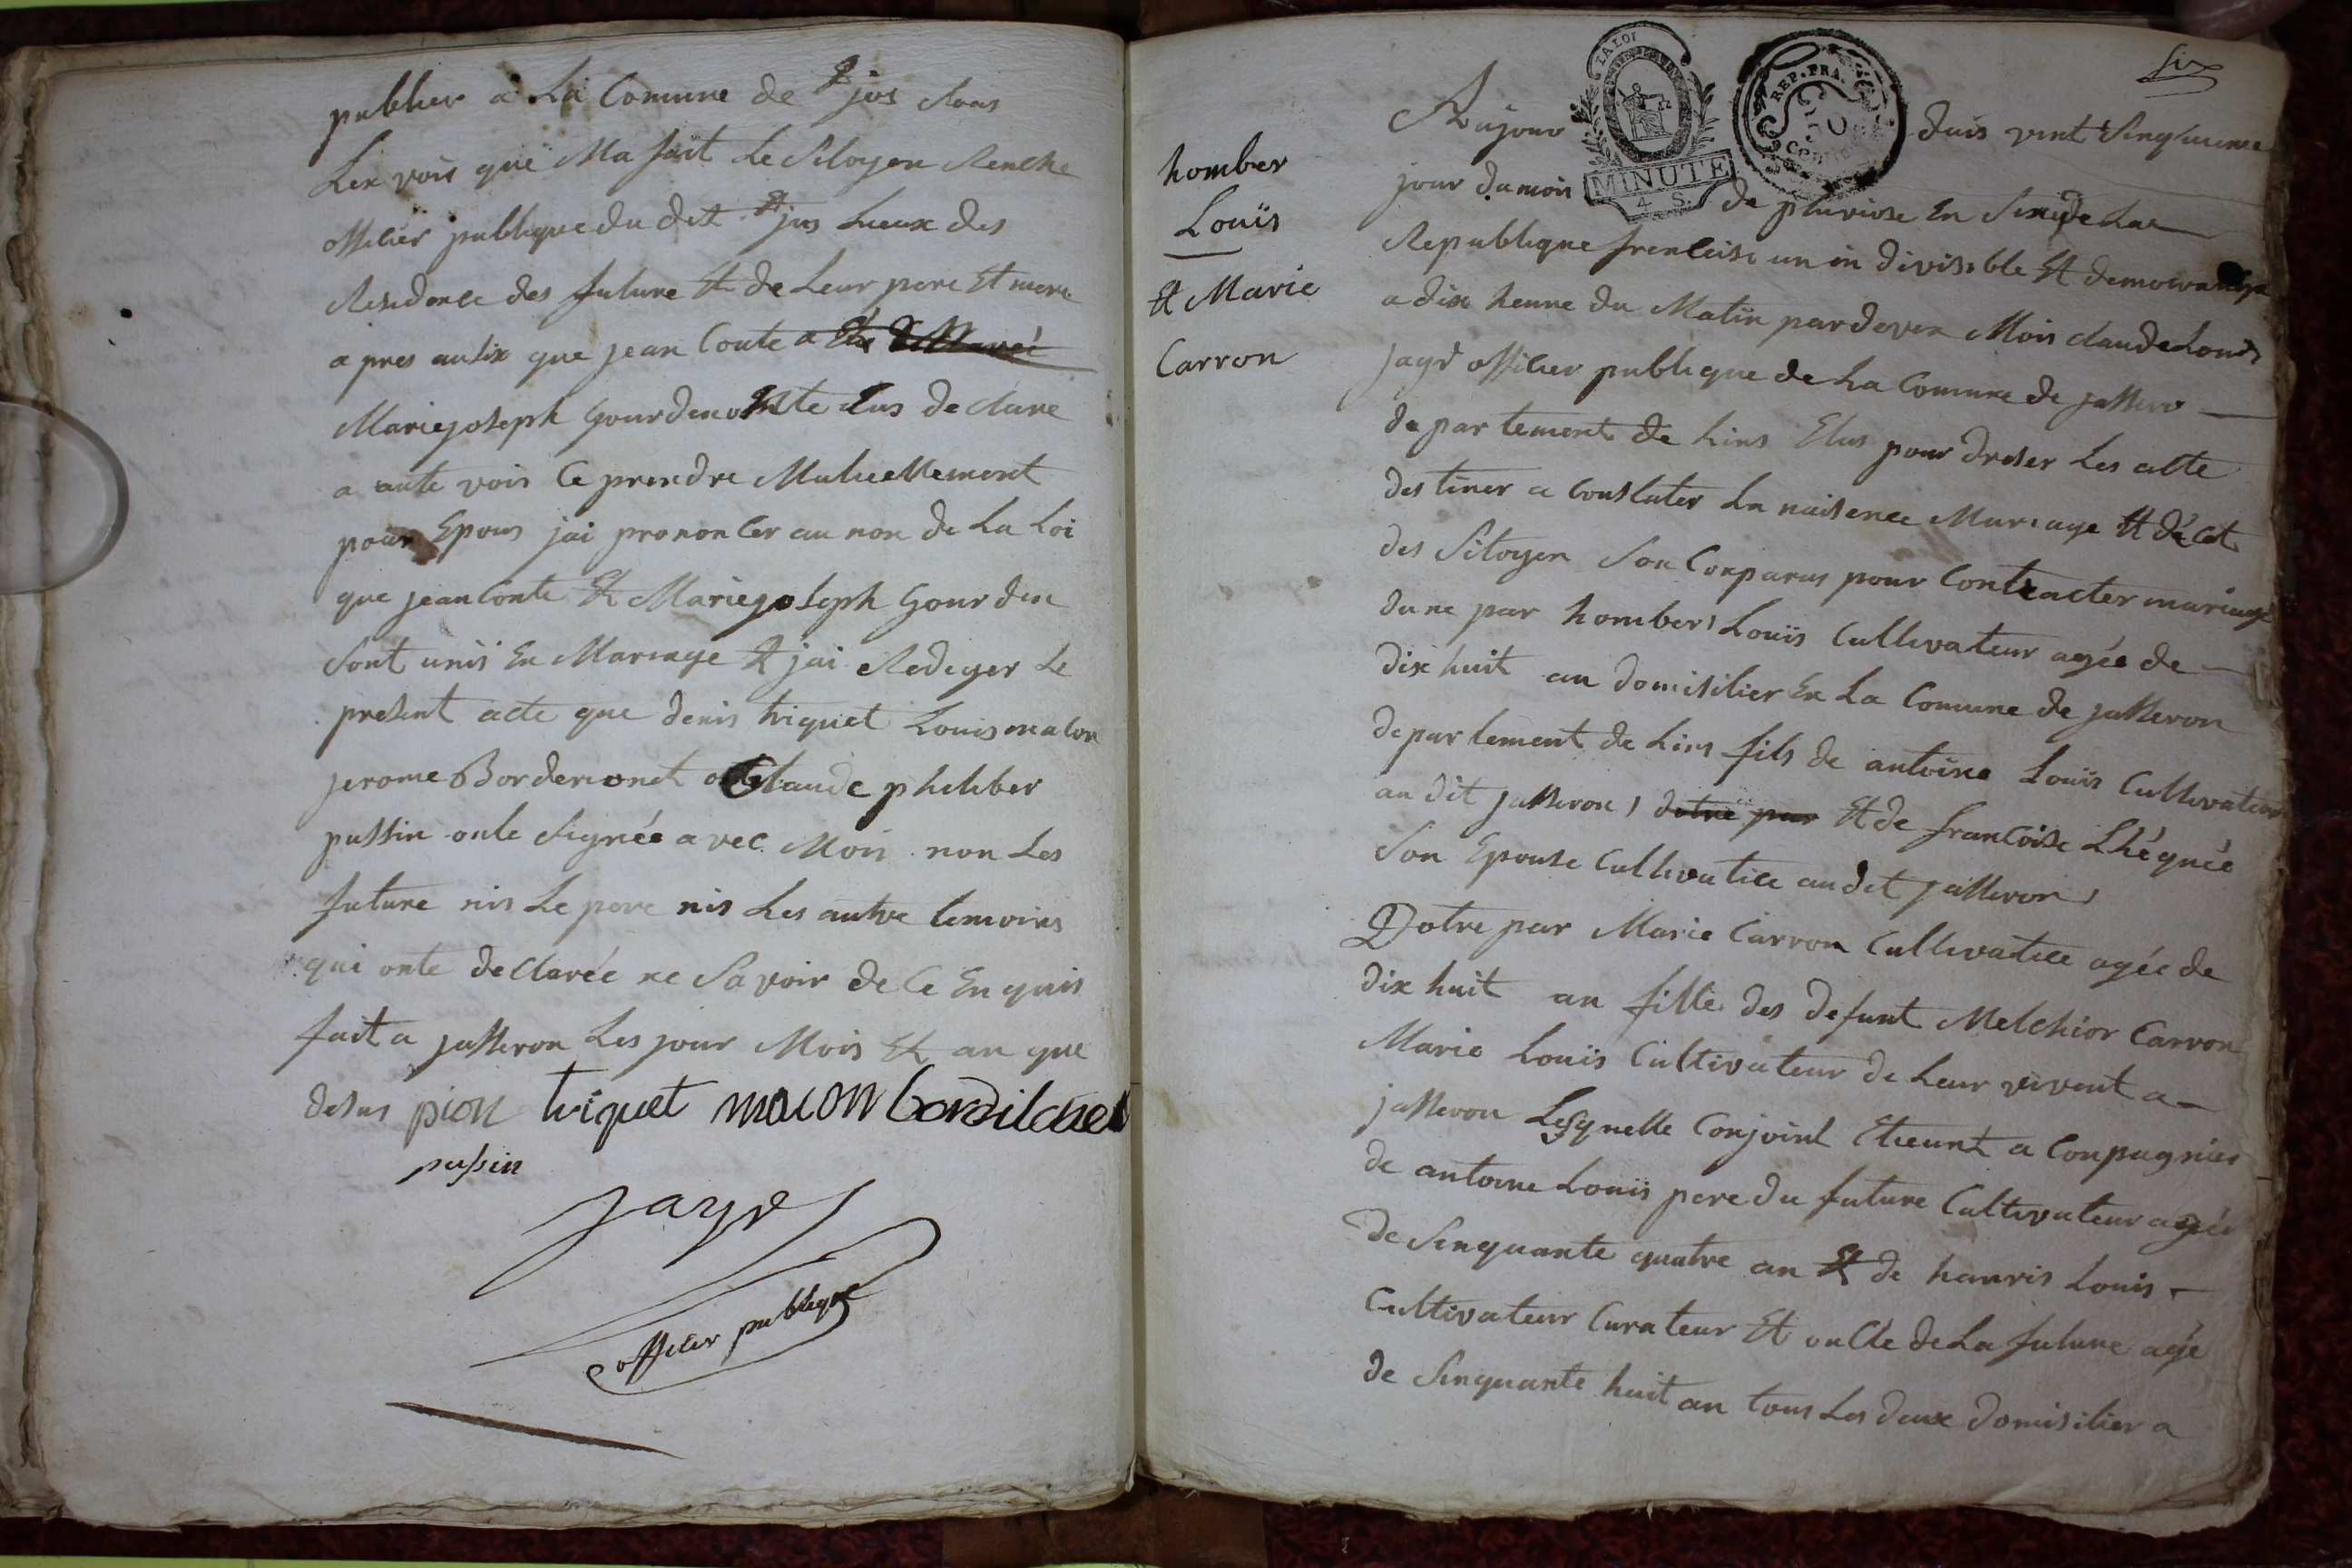 publier a La Comune de St jus dans
Len vois que Ma fait Le Sitoyen Renche
offilier publique du dit St jus Lieux des
Residence des future Et de Leur pere Et mere
a pres autix que jean Conte a
Marie joseph Gourden onte Lus declare
a aute vois Ce prendre Mutuellement
pour Epous jai prononcer au non de La Loi
que jean Conte Et Marie joseph Gourden
Sont unis En Mariage Et jai Rediger Le
present acte que denis triquet Louis macon
jerome Borderionet Claude philiber
pussin onte Signée avec Mois non Les
future nis Le pere nis Les autre temoins
qui onte declarée ne Savoir de Ce Enquis
fait a jasseron Les jour Mois Et an que
desus pion triquet macon
pussin
jayr
offilier publique
six
LA LOI
REP. FRA.
50
Cent
MINUTE
4 S.
homber
Louis
Et Marie
Carron
Aujour duis vint Sinquieme
jour du mois de pluviose En Sinq de La
Republique frencaise un in divisible Et democratique
a dix heure du Matin par deven Mois claude Louis
jayr offilier publique de La Comune de jasseron
departement de Lins Elus pour dreser Les alte
destiner a Constater Ln naisence Mariage Et décet
des Sitoyen Son Conparus pour Contracter mariage
dune par homber Louis Cultivateur agée de
dix huit an domisilier En La Comune de jasseron
departement de Lins fils de antoine Louis Cultivateur
au dit jasseron, dotre par Et de francoise Lhéguée
Son Epouse Cultivatice audit jasseron,
Dotre par Marie Carron Cultivatice agée de
dix huit an fille des defunt Melchior Carron
Marie Louis Cultivateur de Leur vivent a
jasseron Lesquelle Conjoint Etieunt a Conpagnier
de antoine Louis pere du future Cultivateur agée
de Sinquante quatre an Et de hanris Louis
Cultivateur Curateur Et oncle de La future agée
de Sinquante huit an tous Les deux domisilier a